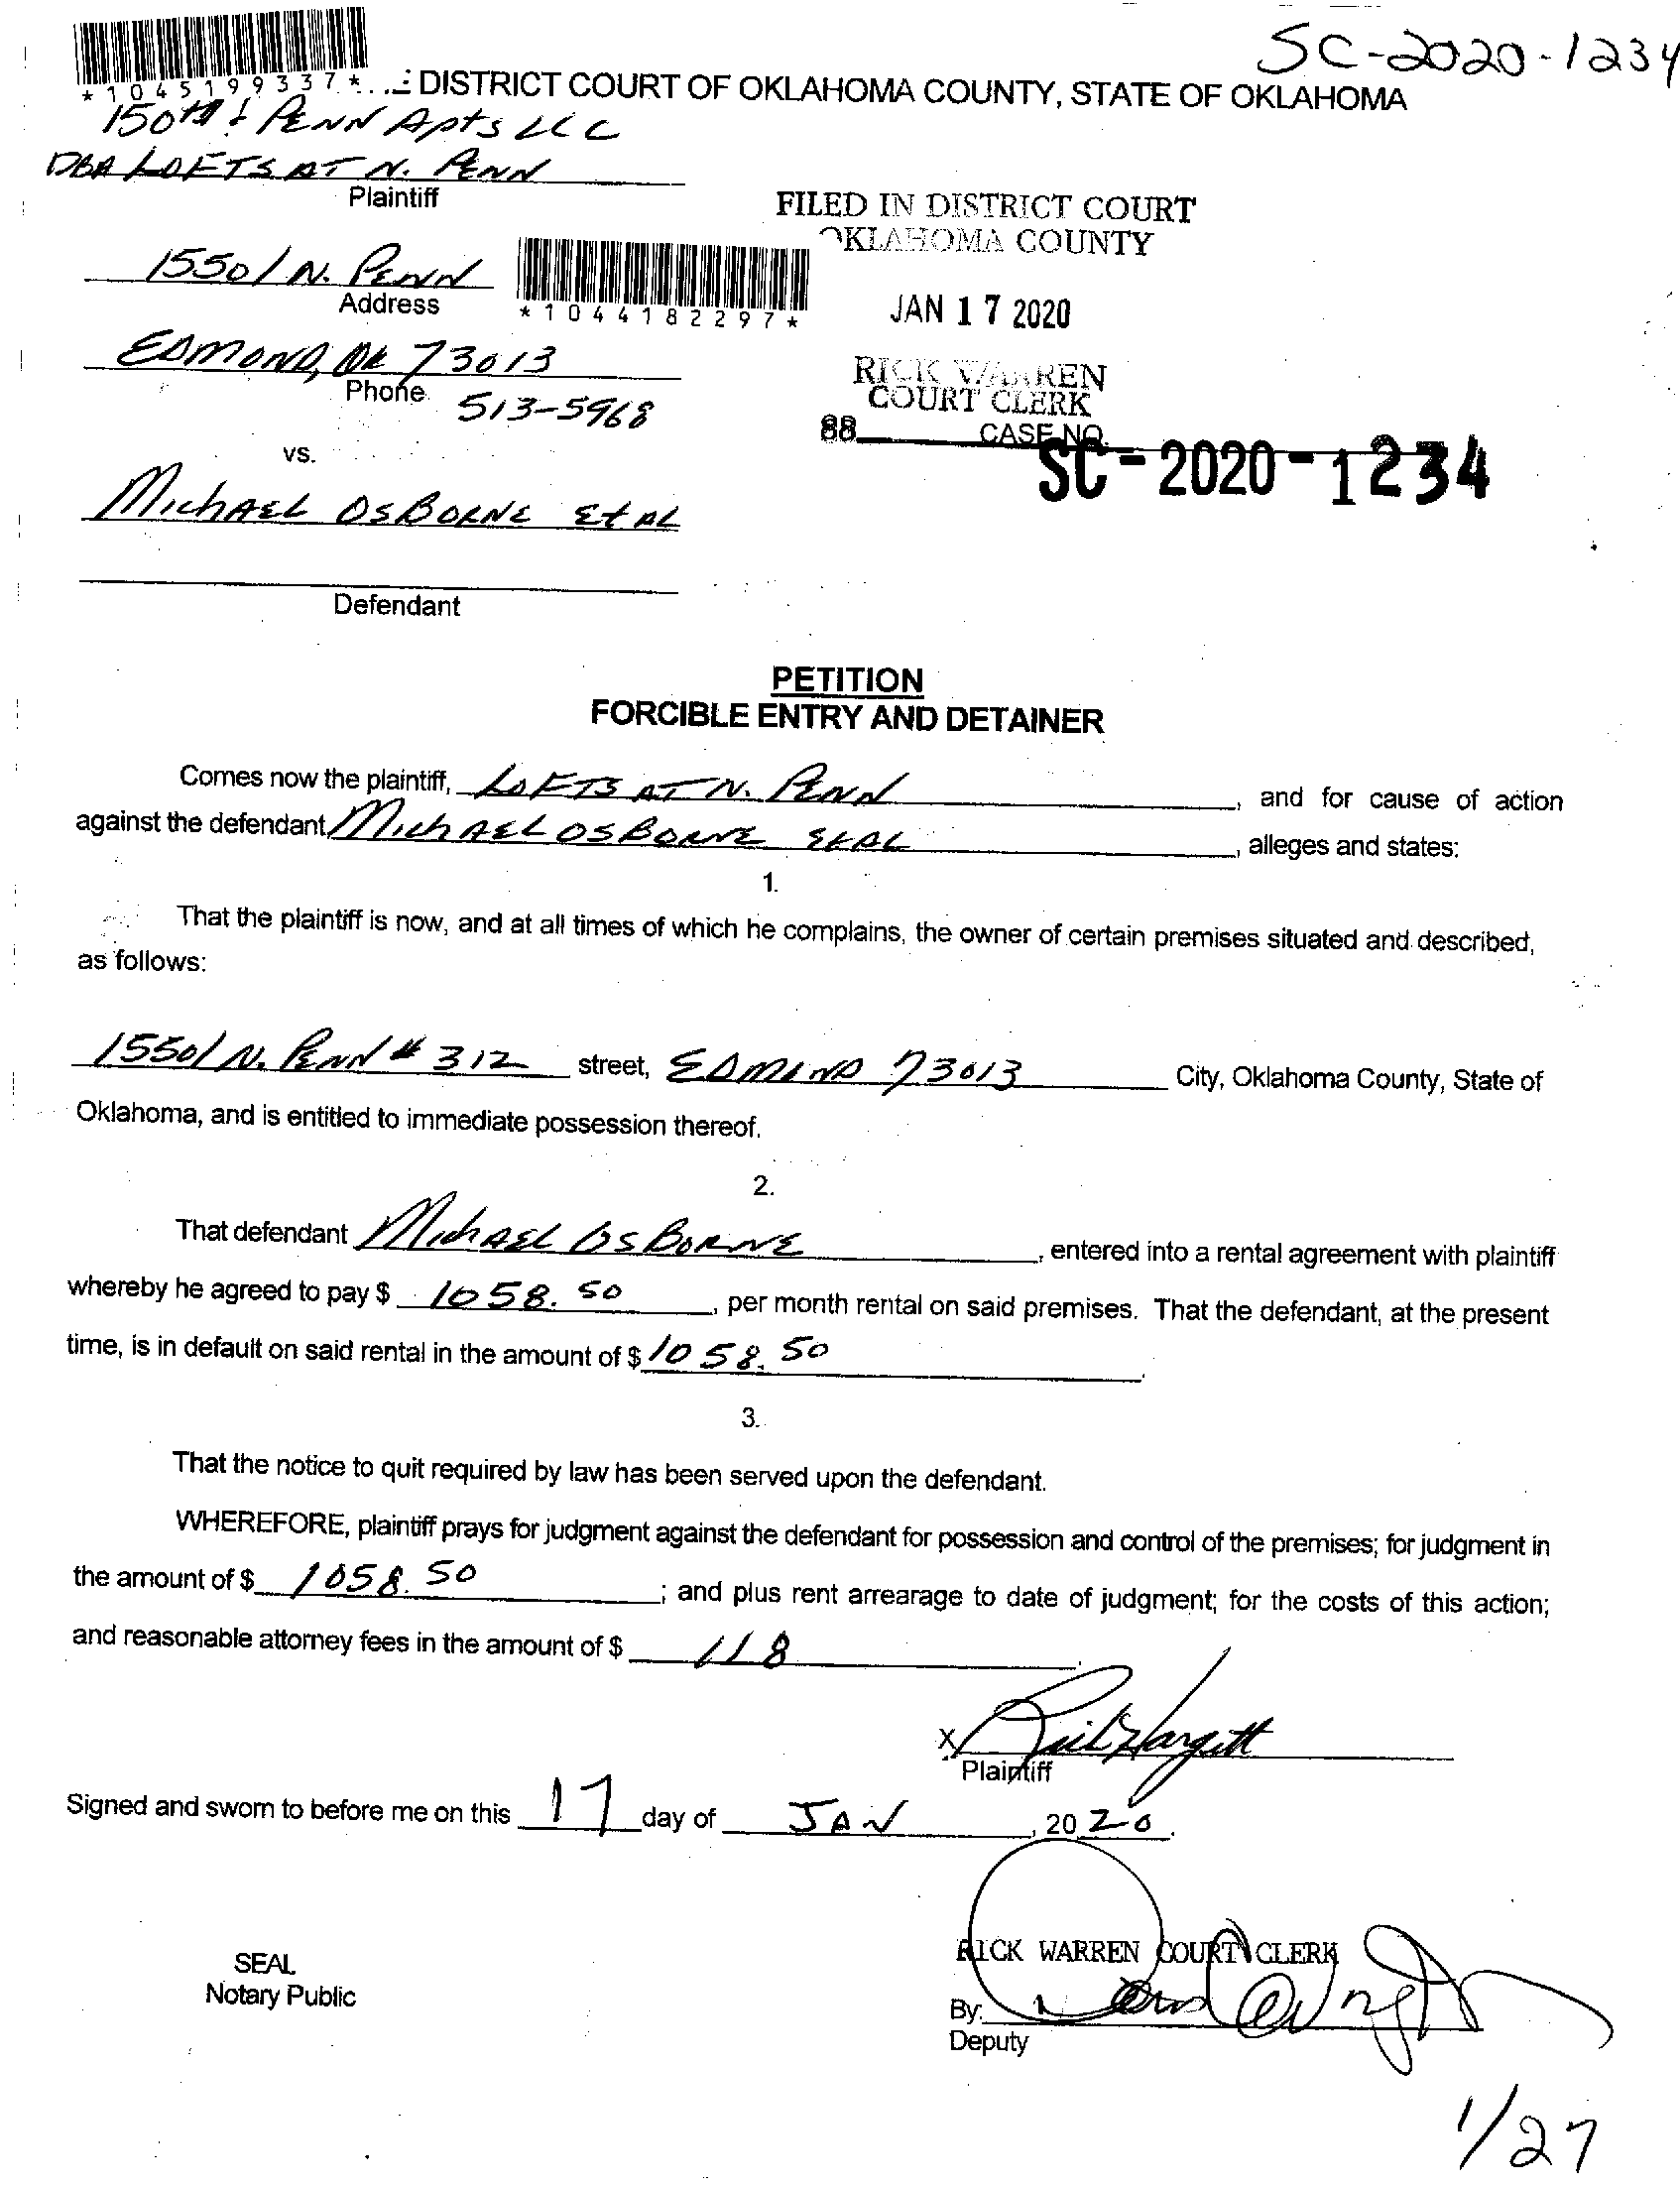 SC-2020-1234
*1045199337*
DISTRICT COURT OF OKLAHOMA COUNTY, STATE OF OKLAHOMA
150th & PENN Apts LLC
DBA LOFTS AT N. PENN
Plaintiff
FILED IN DISTRICT COURT
OKLAHOMA COUNTY
15501 N. PENN
Address
*1044182297*
JAN 17 2020
EDMOND, OK 73013
Phone 513-5968
RICK WARREN
COURT CLERK
88 CASE NO.
SC-2020-1234
vs.
MichAEL OSBORNE Et AL
Defendant
PETITION
FORCIBLE ENTRY AND DETAINER
Comes now the plaintiff, LOFTS AT N. PENN, and for cause of action
against the defendant MichAEL OSBORNE EtAL, alleges and states:
1.
That the plaintiff is now, and at all times of which he complains, the owner of certain premises situated and described,
as follows:
15501 N. PENN # 312 street, EDMOND 73013 City, Oklahoma County, State of
Oklahoma, and is entitled to immediate possession thereof.
2.
That defendant MichAEL OSBORNE, entered into a rental agreement with plaintiff
whereby he agreed to pay $ 1058.50, per month rental on said premises. That the defendant, at the present
time, is in default on said rental in the amount of $ 1058.50.
3.
That the notice to quit required by law has been served upon the defendant.
WHEREFORE, plaintiff prays for judgment against the defendant for possession and control of the premises; for judgment in
the amount of $ 1058.50; and plus rent arrearage to date of judgment; for the costs of this action;
and reasonable attorney fees in the amount of $ 118.
X
Plaintiff
Signed and sworn to before me on this 17 day of JAN, 2020.
RICK WARREN COURT CLERK
SEAL
Notary Public
By:
Deputy
1/27